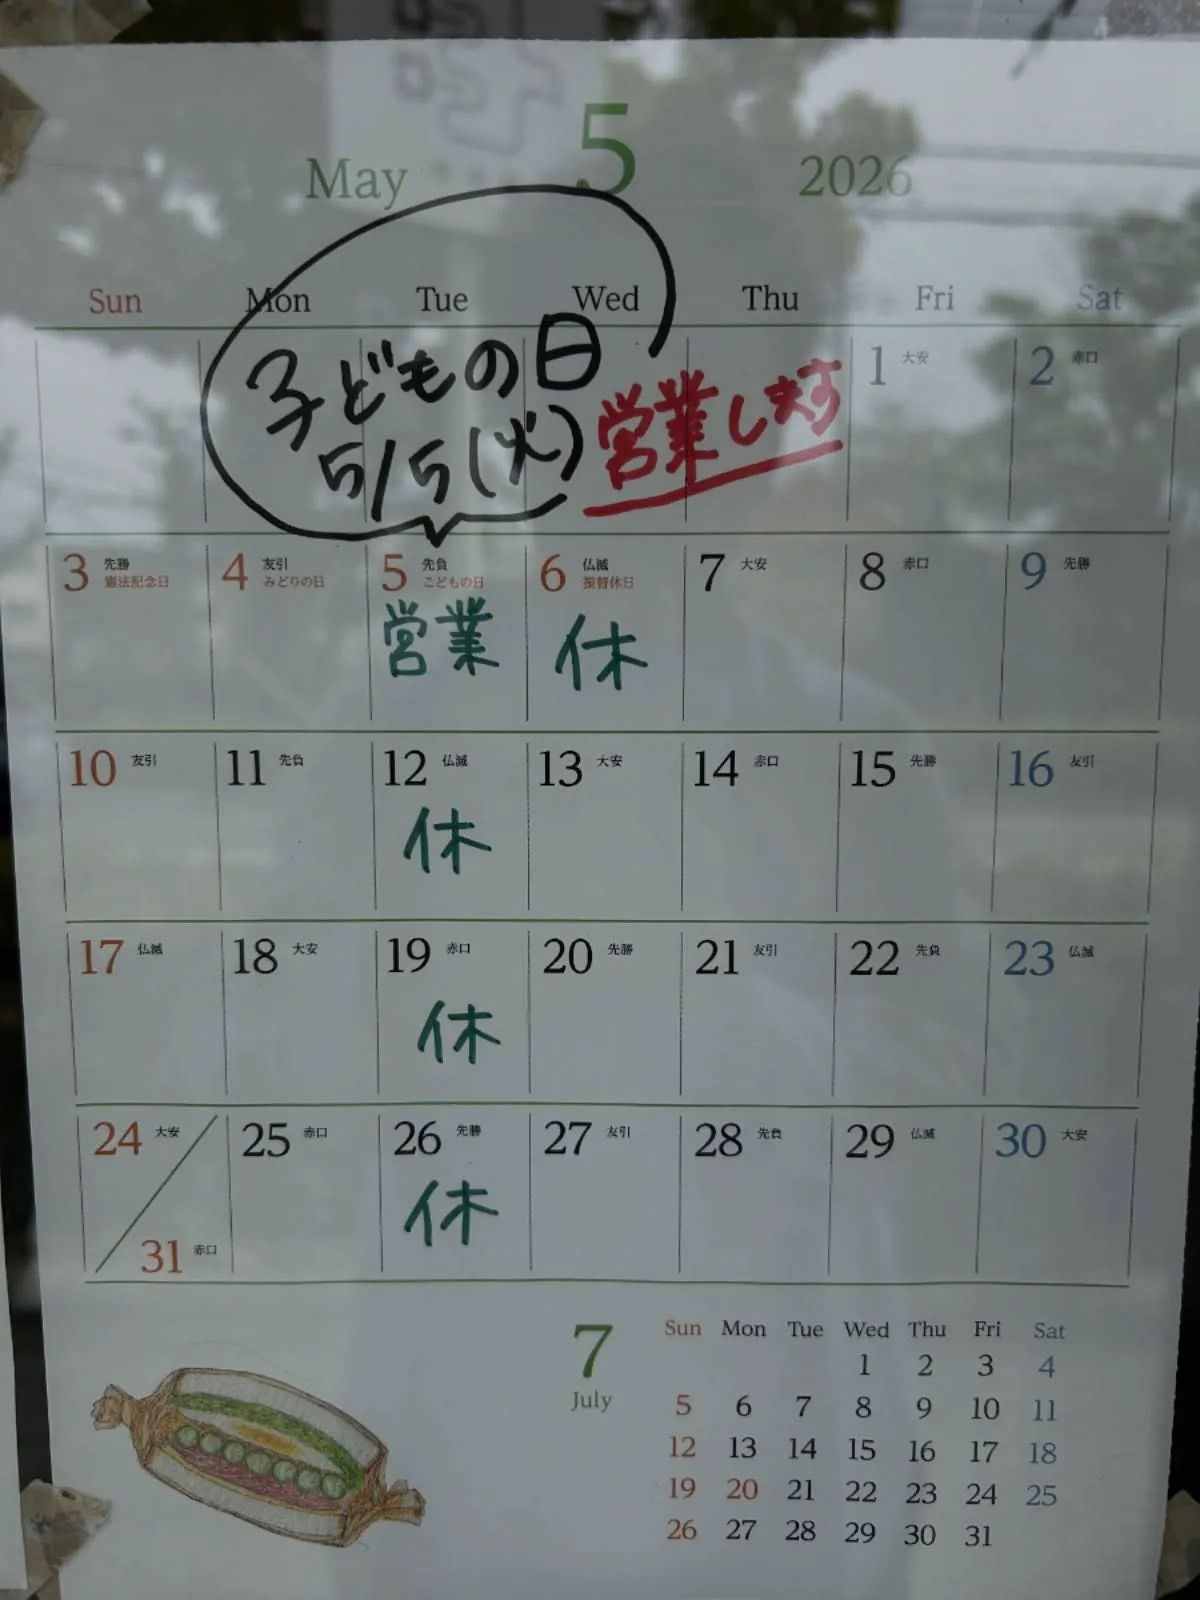 5
May 2026
Sun Mon Tue Wed Thu Fri Sat
子どもの日
5/5(火) 営業します
1 大安 2 赤口
3 先勝 憲法記念日 4 友引 みどりの日 5 先負 こどもの日 6 仏滅 振替休日 7 大安 8 赤口 9 先勝
営業 休
10 友引 11 先負 12 仏滅 13 大安 14 赤口 15 先勝 16 友引
休
17 仏滅 18 大安 19 赤口 20 先勝 21 友引 22 先負 23 仏滅
休
24 大安 25 赤口 26 先勝 27 友引 28 先負 29 仏滅 30 大安
休
31 赤口
7
July
Sun Mon Tue Wed Thu Fri Sat
1 2 3 4
5 6 7 8 9 10 11
12 13 14 15 16 17 18
19 20 21 22 23 24 25
26 27 28 29 30 31